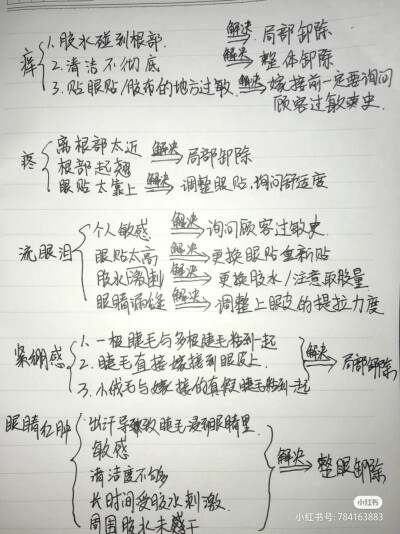 痒
1. 胶水碰到根部. 解决 局部卸除
2. 清洁不彻底 解决 整体卸除
3. 贴眼贴/胶布的地方过敏. 解决 嫁接前一定要询问
顾客过敏史.
疼
离根部太近 解决 局部卸除
根部起翘
眼贴太靠上 解决 调整眼贴,询问舒适度
流眼泪
个人敏感 解决 询问顾客过敏史.
眼贴太高 解决 更换眼贴重新贴
胶水刺 解决 更换胶水/注意取胶量
眼睛漏缝 解决 调整上眼皮的提拉力度
紧绷感
1. 一根睫毛与多根睫毛粘到一起
2. 睫毛直接嫁接到眼皮上. 解决 局部卸除
3. 小绒毛与嫁接的真假睫毛粘到一起
眼睛红肿
出汗导致睫毛浸到眼睛里.
敏感
清洁度不够 解决 整眼卸除
长时间受胶水刺激.
周围胶水未干
小红书
小红书号: 784163883